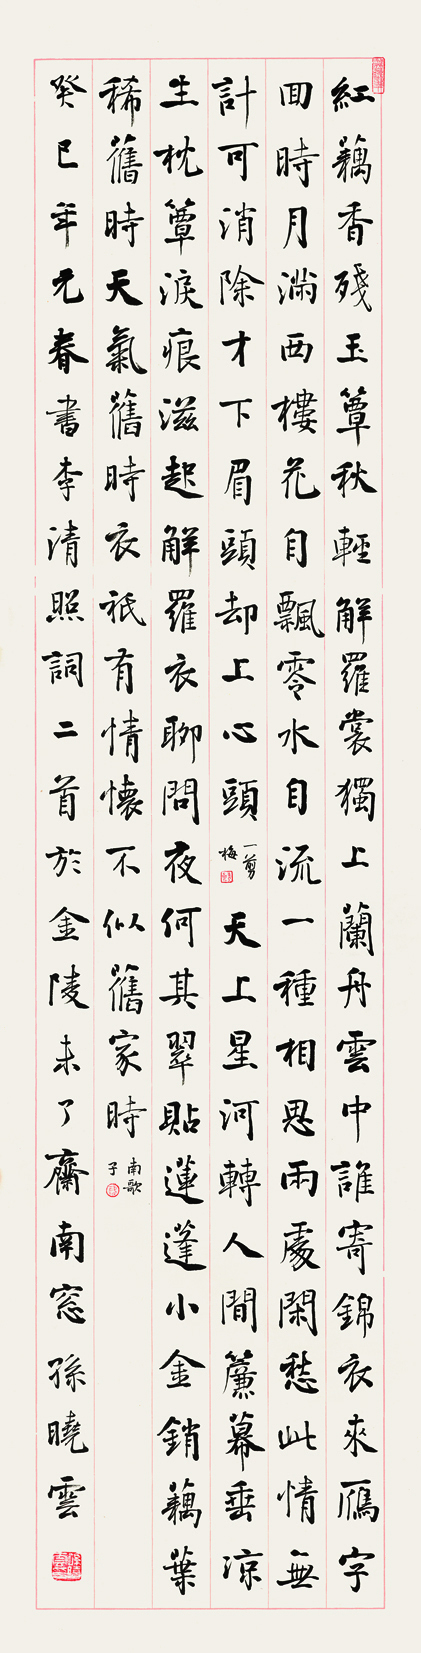 紅藕香殘玉簟秋輕解羅裳獨上蘭舟雲中誰寄錦衣來鴈字
回時月滿西樓花自飄零水自流一種相思兩處閑愁此情無
計可消除才下眉頭却上心頭 一剪梅 天上星河轉人間簾幕垂涼
生枕簟淚痕滋起解羅衣聊問夜何其翠貼蓮蓬小金銷藕葉
稀舊時天氣舊時衣祇有情懷不似舊家時 南歌子
癸巳年元春書李清照詞二首於金陵未了齋南窓孫曉雲